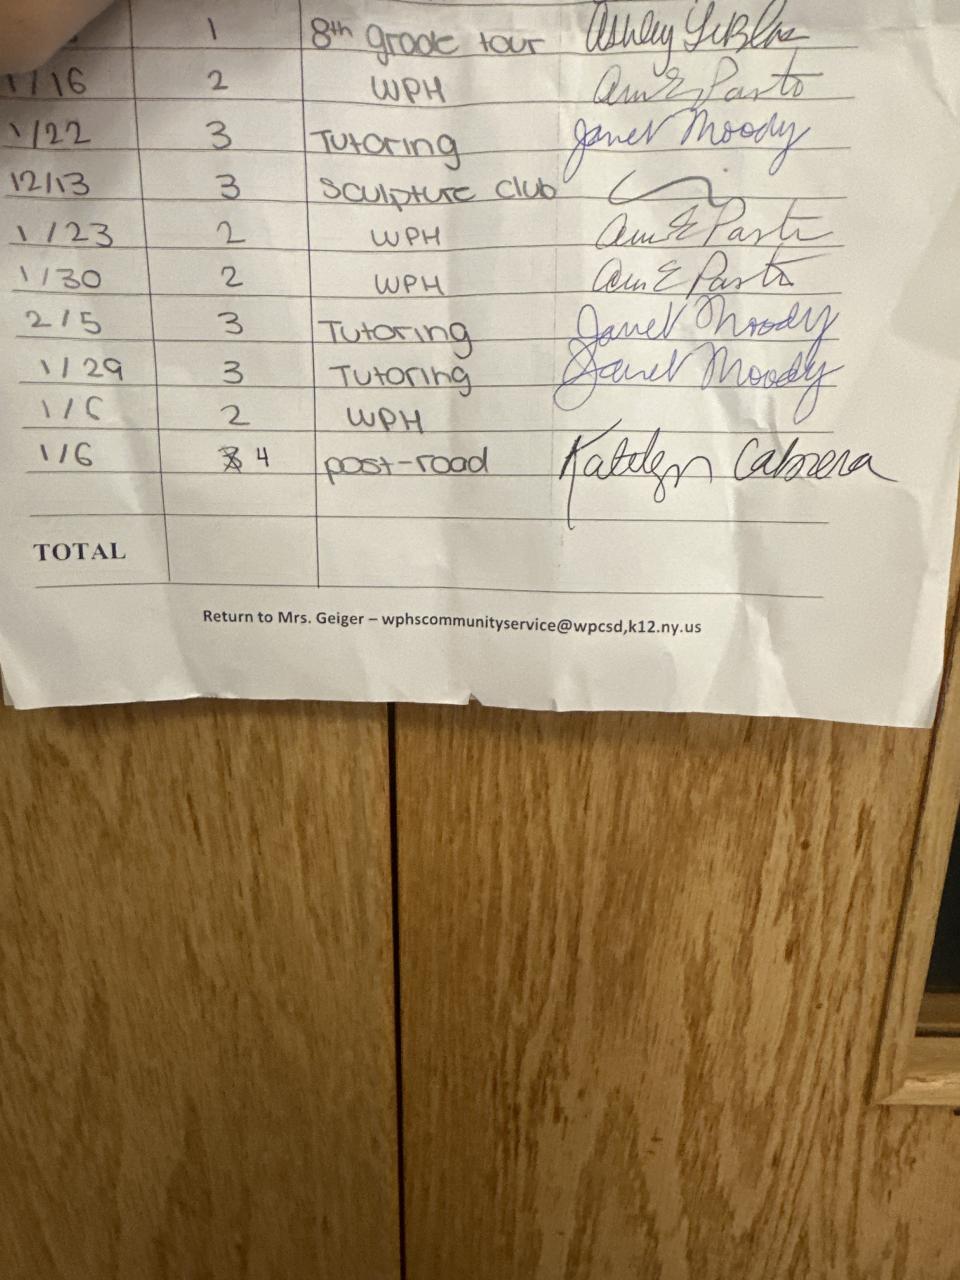 1 8th grade tour Ashley
1/16 2 WPH
1/22 3 Tutoring Janet Moody
12/13 3 Sculpture club
1/23 2 WPH
1/30 2 WPH
2/5 3 Tutoring Janet Moody
1/29 3 Tutoring Janet Moody
1/6 2 WPH
1/6 4 post-road Katelyn Cabrera
TOTAL
Return to Mrs. Geiger – wphscommunityservice@wpcsd,k12.ny.us